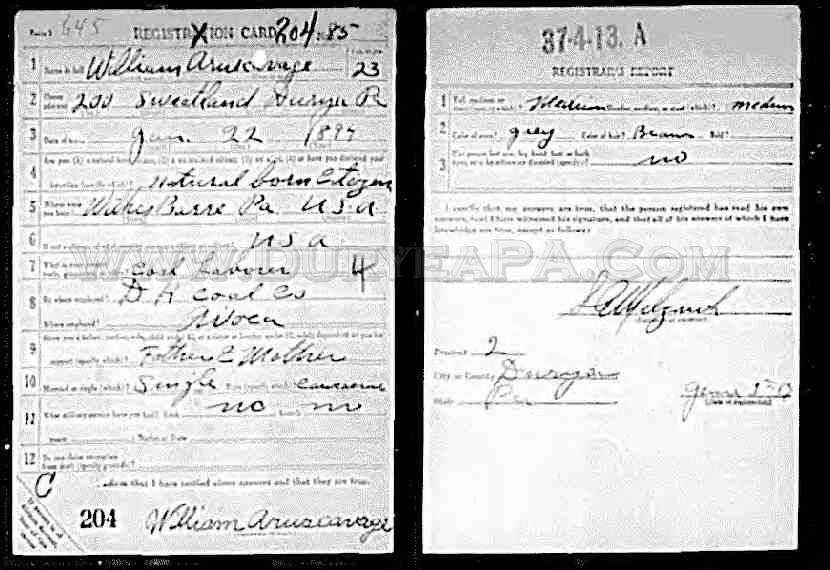 Form 1 645 REGISTRATION CARD 204-85
1 Name in full William Aruscavage 23
2 Home address 200 Sweetland Duryea Pa
3 Date of birth Jan. 22 1894
4 Are you (1) a natural-born citizen, (2) a naturalized citizen, (3) an alien, (4) or have you declared your
intention (specify which)? Natural born Citizen
5 Where were you born? Wilkes Barre Pa USA
6 If not a citizen, of what country are you a citizen or subject? USA
7 What is your present trade, occupation, or office? Coal Laborer 4
8 By whom employed? D H Coal Co
Where employed? Avoca
9 Have you a father, mother, wife, child under 12, or a sister or brother under 12, solely dependent on you for
support (specify which)? Father & Mother
10 Married or single (which)? Single Race (specify which)? Caucasian
11 What military service have you had? Rank no Branch no
years Nation or State
12 Do you claim exemption from draft (specify grounds)?
I affirm that I have verified above answers and that they are true.
C
204 William Aruscavage
37-4-13. A
REGISTRAR'S REPORT
1 Tall, medium, or short (specify which)? Medium Slender, medium, or stout (which)? medium
2 Color of eyes? grey Color of hair? Brown Bald?
3 Has person lost arm, leg, hand, foot, or both eyes, or is he otherwise disabled (specify)? no
I certify that my answers are true, that the person registered has read his own
answers, that I have witnessed his signature, and that all of his answers of which I have
knowledge are true, except as follows:
Precinct 2
City or County Duryea
State Pa
(Date of registration)
WWW.DURYEAPA.COM